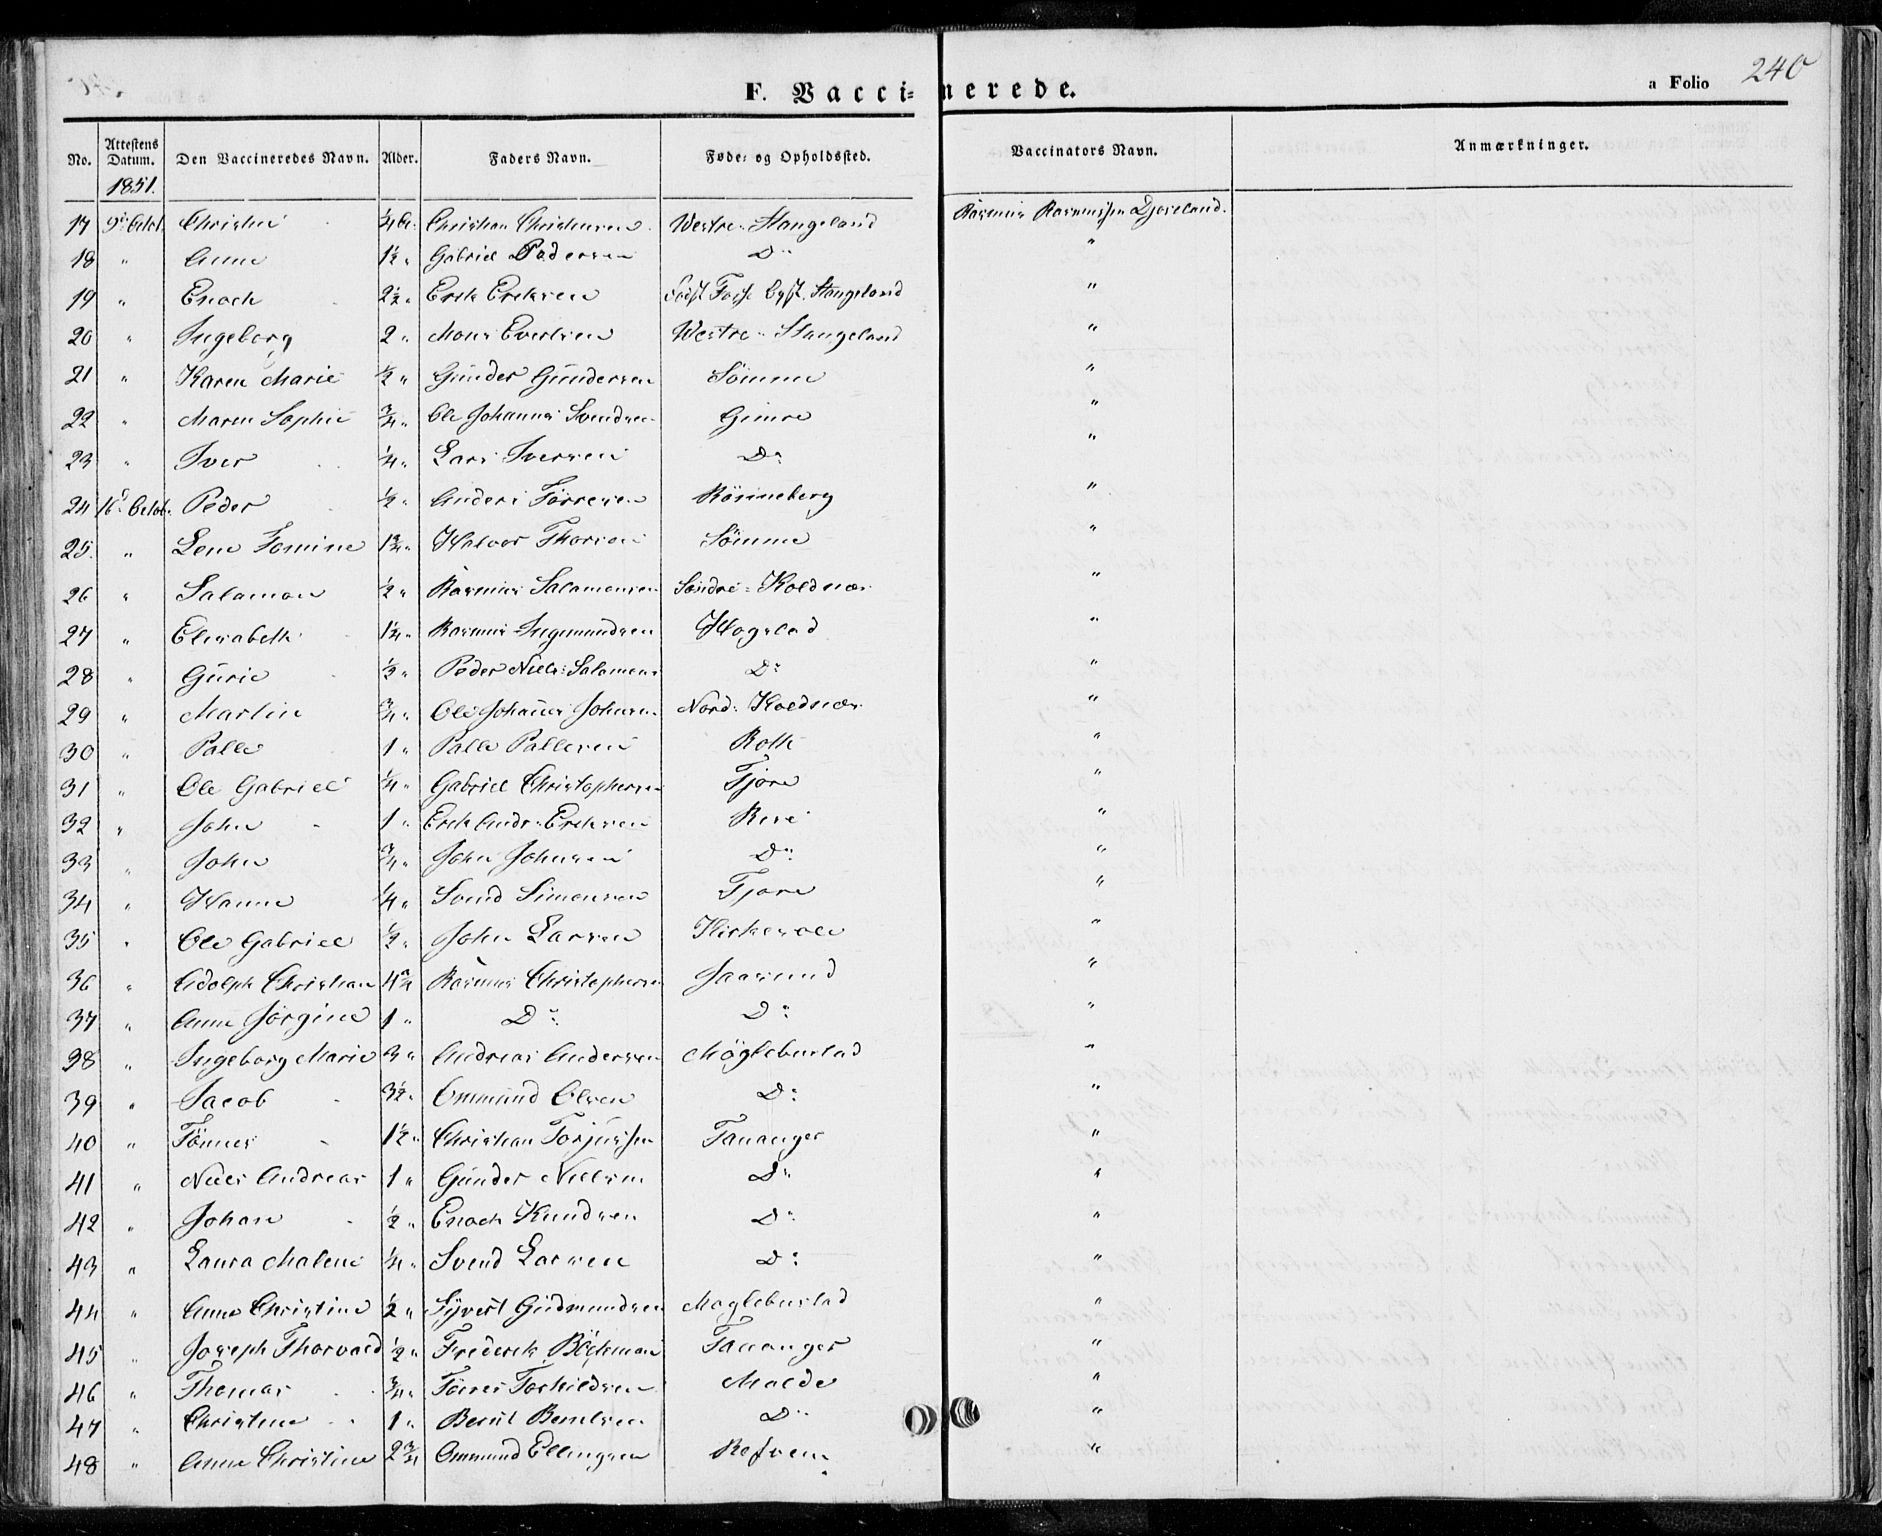 240
F. Vaccinerede.
a Folio
No. Attestens Datum. Den Vaccineredes Navn. Alder. Faders Navn. Føde- og Opholdssted. Vaccinators Navn. Anmærkninger.
1851.
17 9de Octob. 1/4 Christian Christensen Westre Stangeland Rasmus Rasmussen
18 " Anne 1 1/2 " Gabriel Pedersen Do "
19 " Enoch 2 1/2 " Erik Eriksen Stangeland "
20 " Ingeborg 2 " Mons Evertsen Westre Stangeland "
21 " Karen Marie 1/2 " Gunder Gundersen Sömme "
22 " Maren Sophie 3/4 " Ole Johannes Svendsen Gimre "
23 " Iver 1/4 " Lars Iversen Do "
24 16d Octob. Peder 1/2 " Anders Törresen Rönneberg "
25. " Lene Tomine 1 3/4 " Halvor Thorsen Sömme "
26 " Salamon 1/2 " Rasmus Salamonsen Söndre Koldnæs "
27 " Elisabeth 1 1/4 " Rasmus Ingemundsen Hogstad "
28 " Gurie 1/2 " Peder Niels Salamons Do "
29 " Martin 3/4 " Ole Johannes Johnsen Nord: Koldnæs "
30 " Palle 1 " Palle Pallesen Roth "
31 " Ole Gabriel 1/4 " Gabriel Christophersen Tjore "
32 " John 1 " Erik Andr: Eriksen Rege "
33 " John 3/4 " John Johnsen Do "
34 " Hanne 1/4 " Svend Simonsen Tjore "
35 " Ole Gabriel 1/2 " John Larsen Kirkevole "
36 " Adolph Christian 4 3/4 Rasmus Christophersen Jaasund "
37 " Anne Jörgine 1 " Do Do "
38 " Ingeborg Marie 3 " Andreas Andersen Möglebustad "
39 " Jacob 3 1/2 " Ommund Olsen Do "
40 " Tönnes 1 1/2 " Christian Torjussen Tananger "
41 " Niels Andreas 1 " Gunder Nielsen Do "
42 " Johan 1/2 " Enoch Knudsen Do "
43 " Laura Malene 1/4 " Svend Larsen Do "
44 " Anne Christine 1/2 " Syvert Gudmundsen Möglebustad "
45 " Joseph Thorvald 1/2 " Frederik Böckman Tananger "
46 " Thomas 3/4 " Törres Torkildsen Molde "
47 " Christine 1 " Bernt Berntsen Do "
48 " Anne Christine 2 3/4 Ommund Ellingsen Refvem "